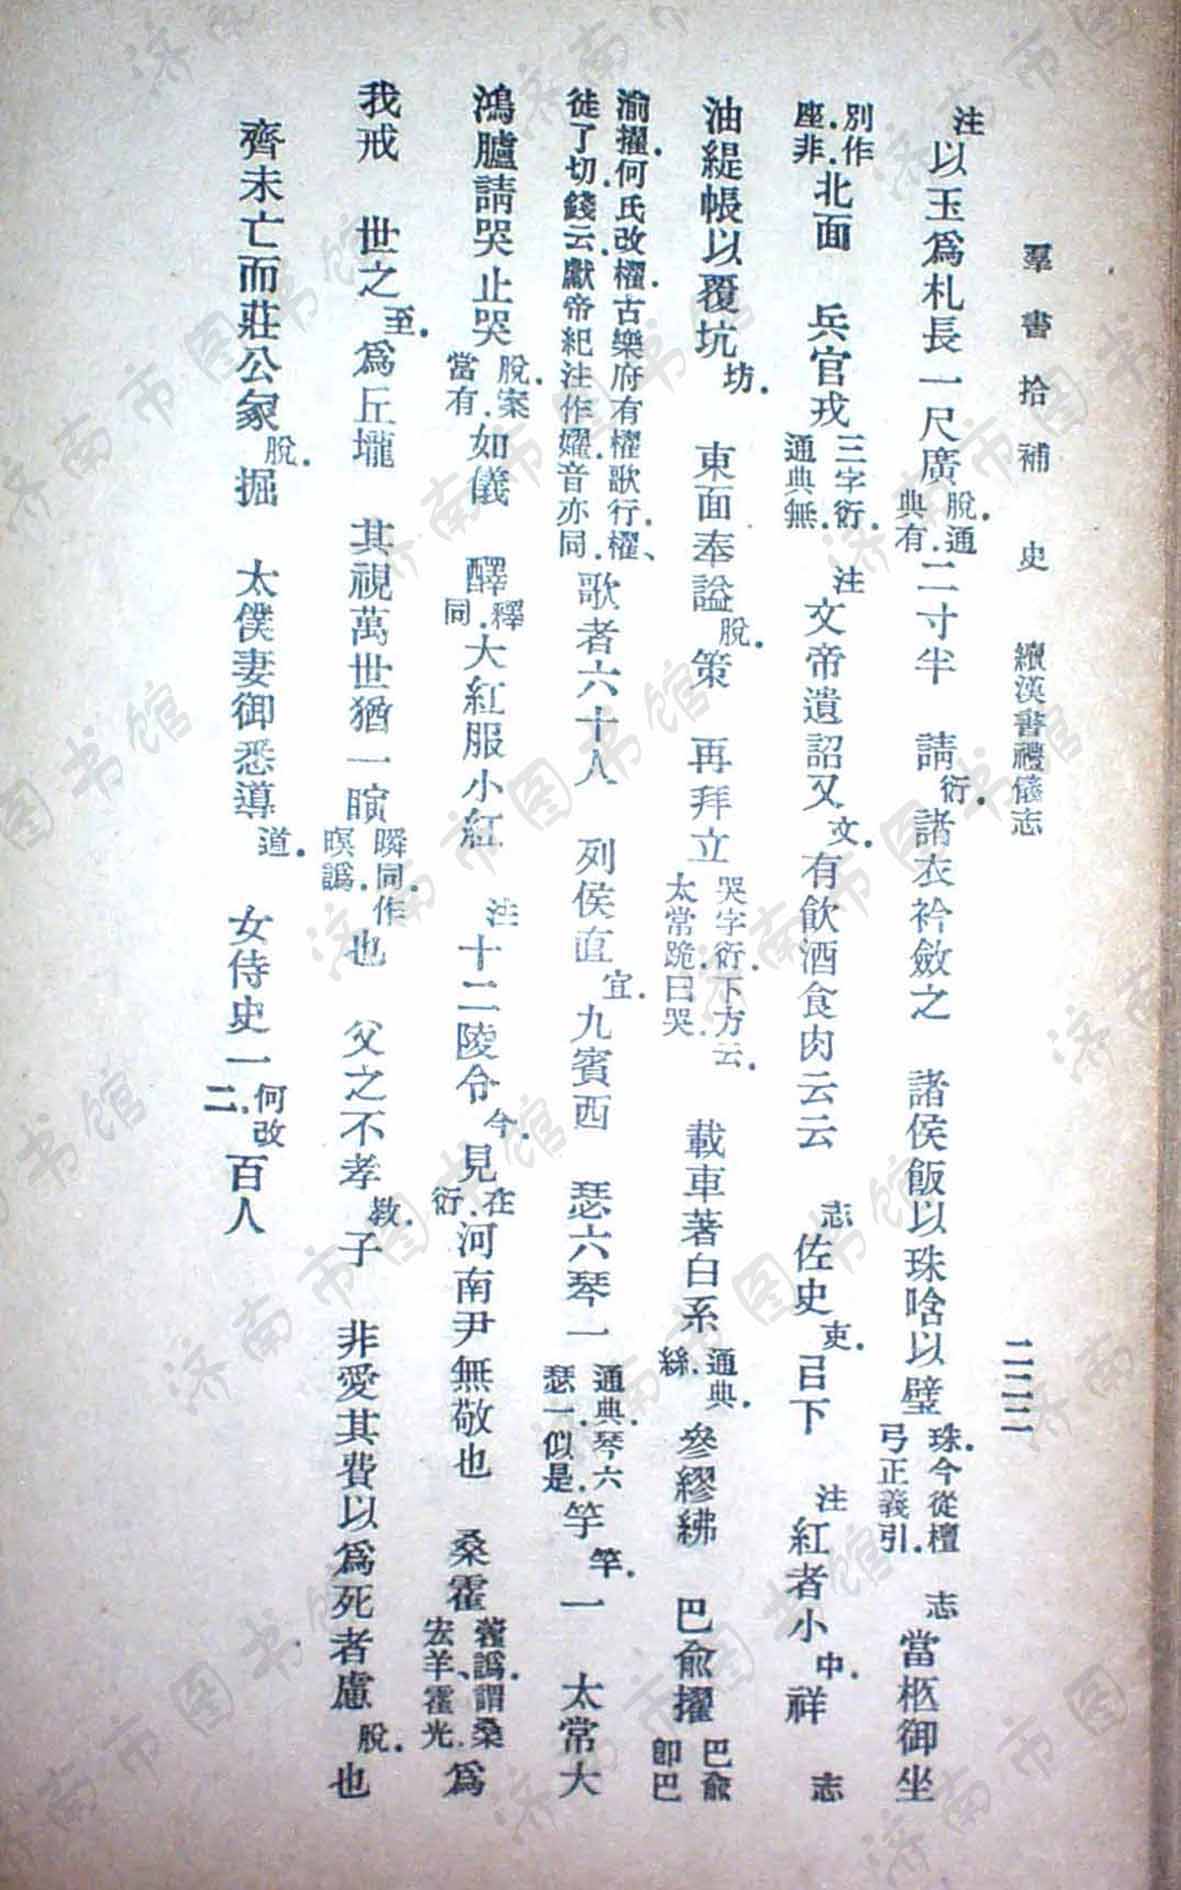 羣書拾補 史 續漢書禮儀志 二二二
注以玉爲札長一尺廣脫.通典有.二寸半 請衍.諸衣衿斂之 諸侯飯以珠啥以璧珠.今從檀弓正義引. 志當柩御坐
別作座.非.北面 兵官戎三字衍.通典無. 注文帝遺詔又文.有飲酒食肉云云 志佐史吏.㠯下 注紅者小中.祥 志
油緹帳以覆坑坊. 東面奉謚脫.策 再拜立哭字衍.下方云.太常跪曰哭. 載車著白系通典.絲.參繆紼 巴俞擢巴俞即巴
渝擢.何氏改櫂.古樂府有櫂歌行.櫂、徒了切.錢云.獻帝紀注作嬥.音亦同.歌者六十人 列侯直宜.九賓西 瑟六琴一通典.琴六瑟一.似是.竽竿.一 太常大
鴻臚請哭止哭脫.案當有.如儀 醳釋同.大紅服小紅 注十二陵令今.見在衍.河南尹無敬也 桑霍藿譌.謂桑宏羊、霍光.爲
我戒 世之至.爲丘壠 其視萬世猶一瞚瞬同.作暝譌.也 父之不孝教.子 非愛其費以爲死者慮脫.也
齊未亡而莊公冢脫.掘 太僕妻御悉導道. 女侍史一何改二.百人